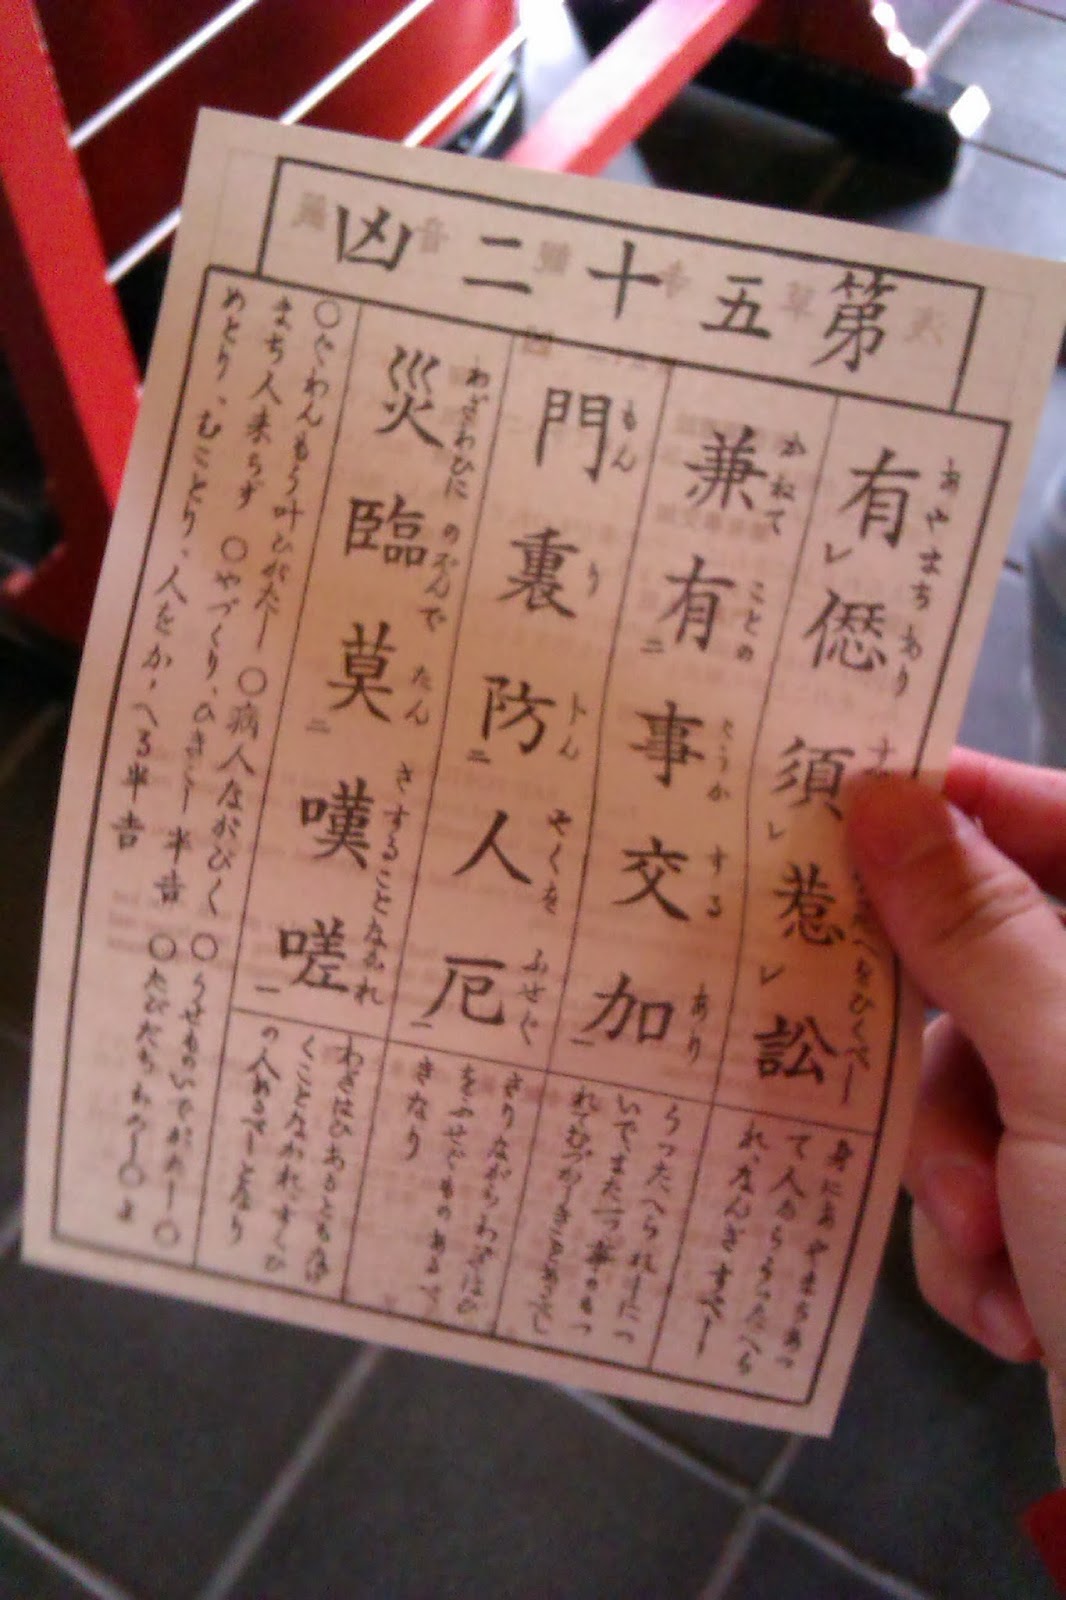 第五十二凶
あやまちあり
有レ僁須レ惹レ訟
身にあやまちあつ
て人からうつたへら
れ、なんぎすべし
かねて ことの かうか する あり
兼有二事交加一
うつたへられしにつ
いでまた一つ事のもつ
もん り
門裏防二人厄一
やくを ふせぐ
さりながらわざはひ
をふせぐものあるべ
きなり
わざわひに のぞんで たん さすることなかれ
災臨莫二嘆嗟一
わざはひあるともなげ
くことなかれ、すくひ
の人あるべしとなり
○ぐわんもう叶ひがたし ○病人ながびく ○うせものいでがたし ○
まち人来らず ○やづくり、ひきこし 半吉 ○たびだちわるし ○よ
めとり、むことり、人をかゝへる半吉